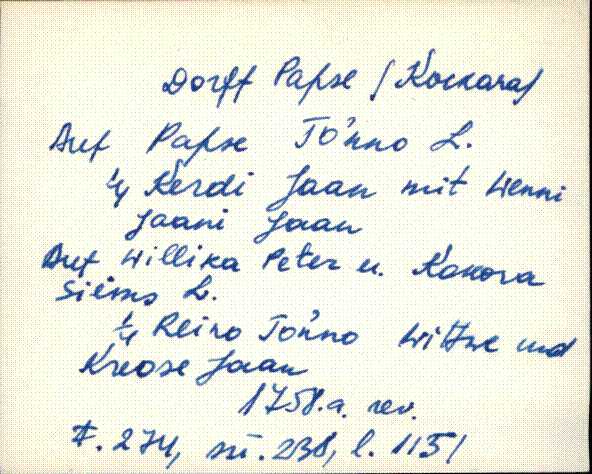 Dorff Papse /Kockora/
Auf Papse Tönno L.
1/4 Kerdi Jaan mit Wenni
Jaani Jaan
Auf Willika Peter u. Kokora
Siims L.
1/4 Reino Tönno Wittwe und
Kreose Jaan
1758.a. rev.
F. 274, nü. 238, l. 1151